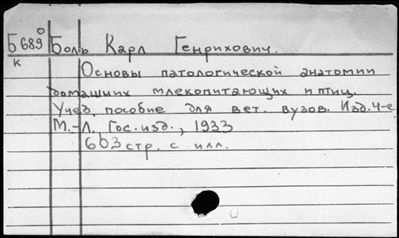 Б 689⁰ Боль Карл Генрихович.
к
Основы патологической анатомии
домашних млекопитающих и птиц.
Учеб. пособие для вет. вузов. Изд. 4-е
М.-Л. Гос. изд., 1933
603 стр. с илл.